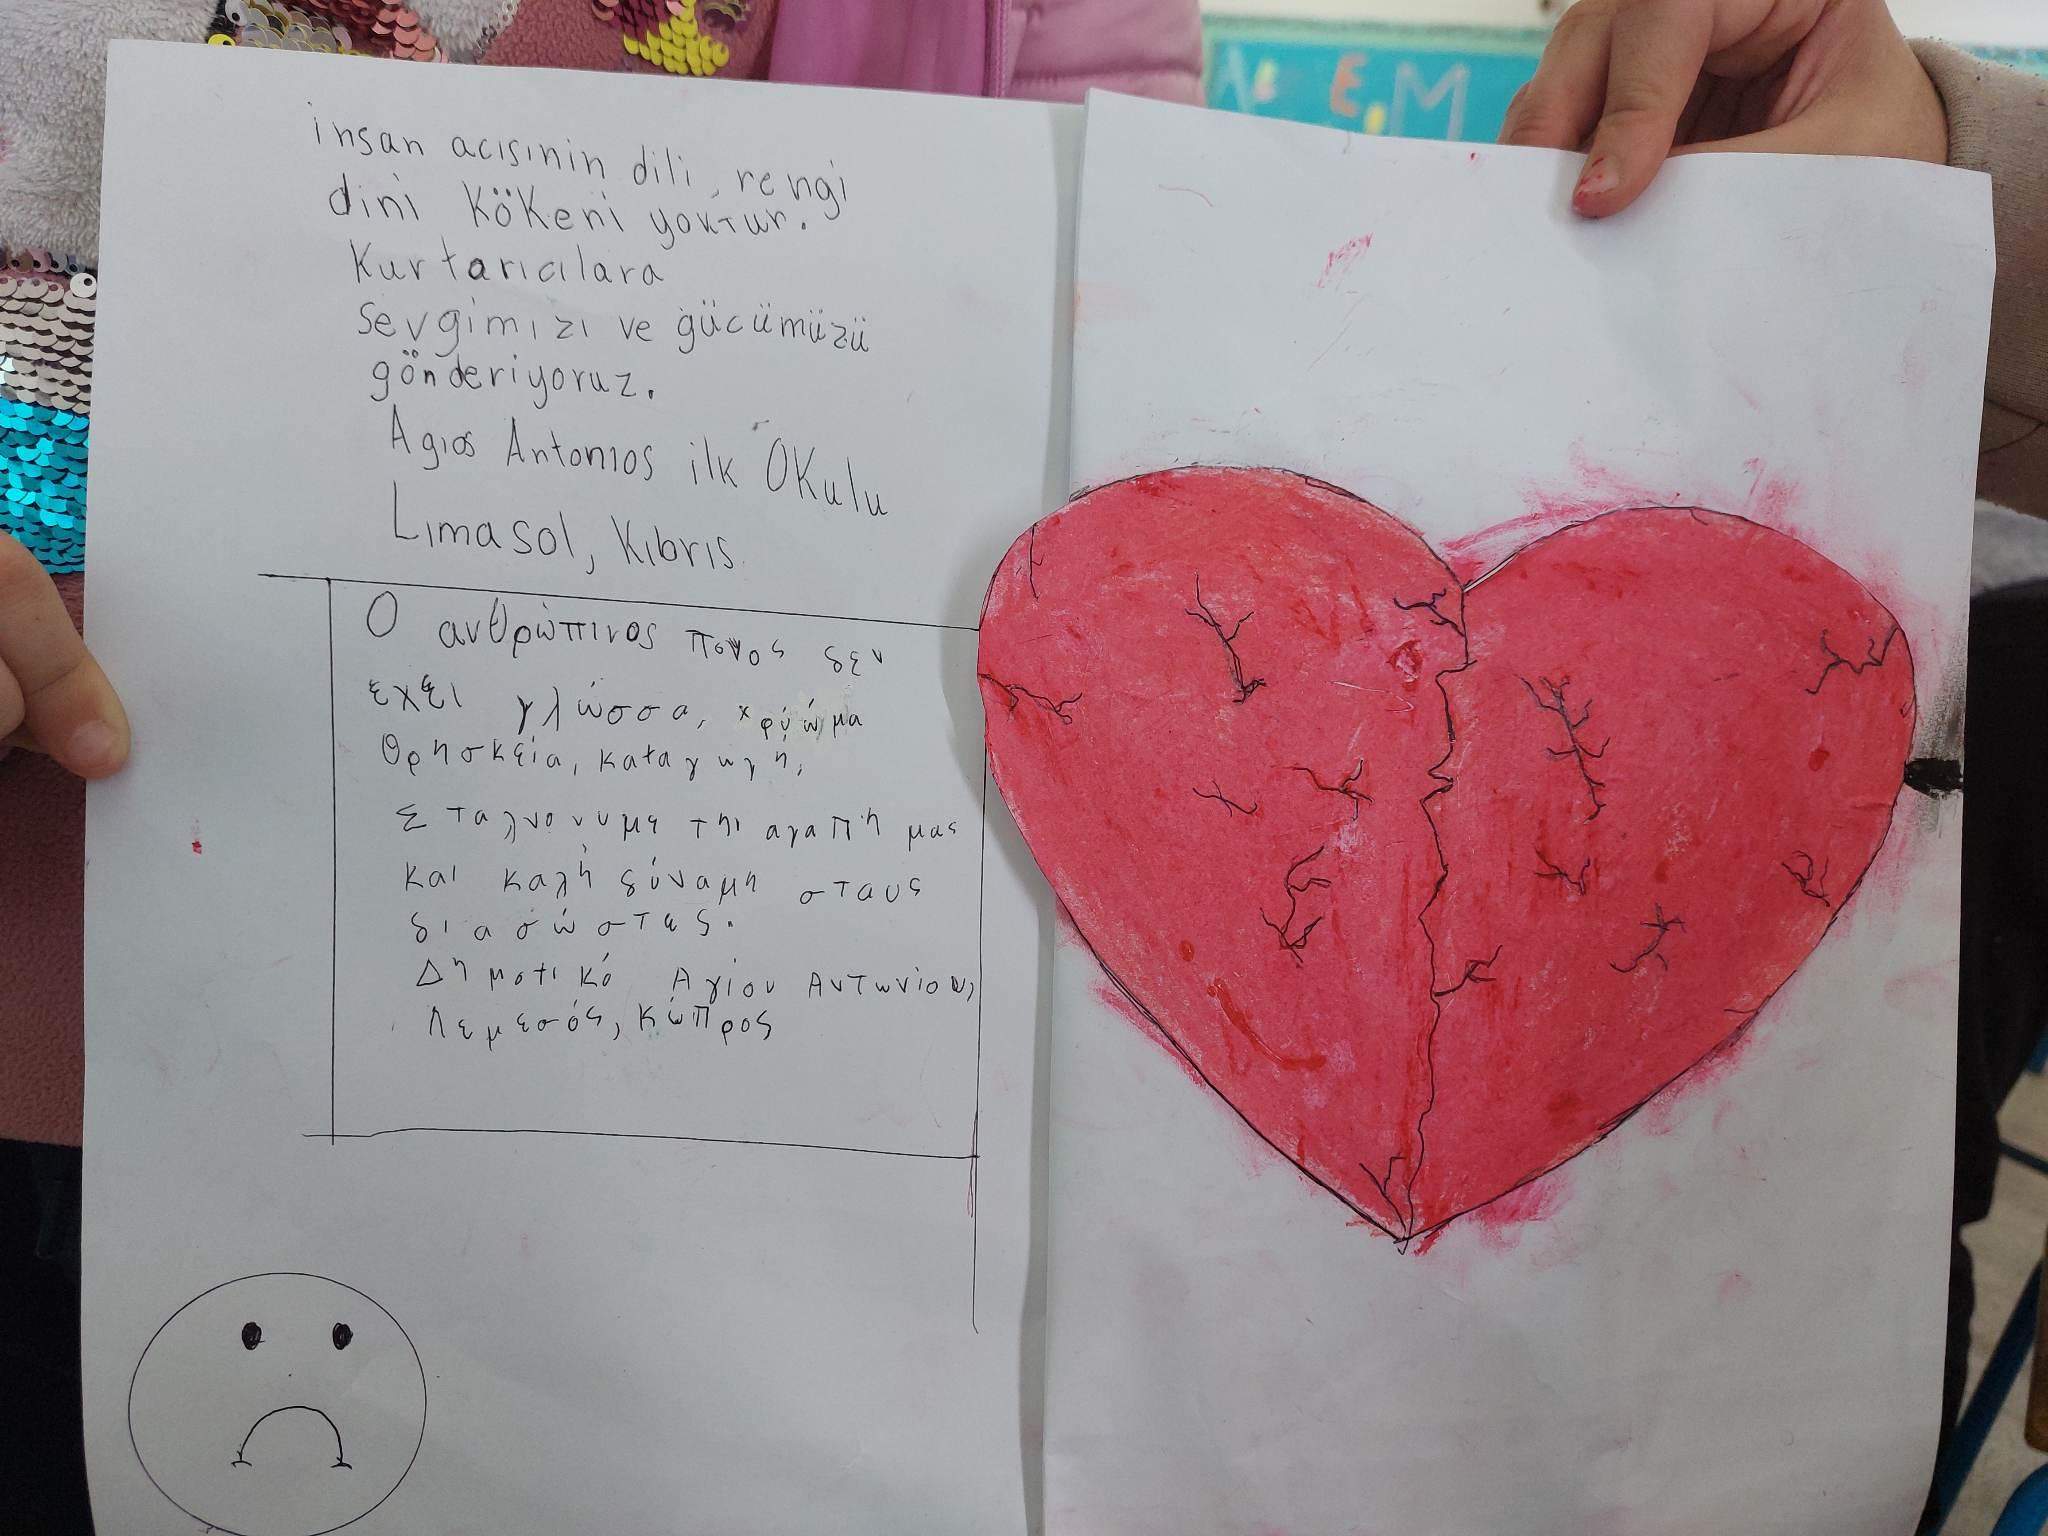 insan acısının dili, rengi
dini kökeni yoktur.
Kurtarıcılara
sevgimizi ve gücümüzü
gönderiyoruz.
Agıos Antonıos ilk Okulu
Lımasol, Kıbrıs
Ο ανθρώπινος πονος δεν
εχει γλώσσα, χρώμα
θρησκεία, καταγωγή,
Σταλνουνυμε την αγαπή μας
και καλή δύναμη σταυς
διασώστες.
Δημοτικό Αγίου Αντωνίου,
Λεμεσός, Κύπρος